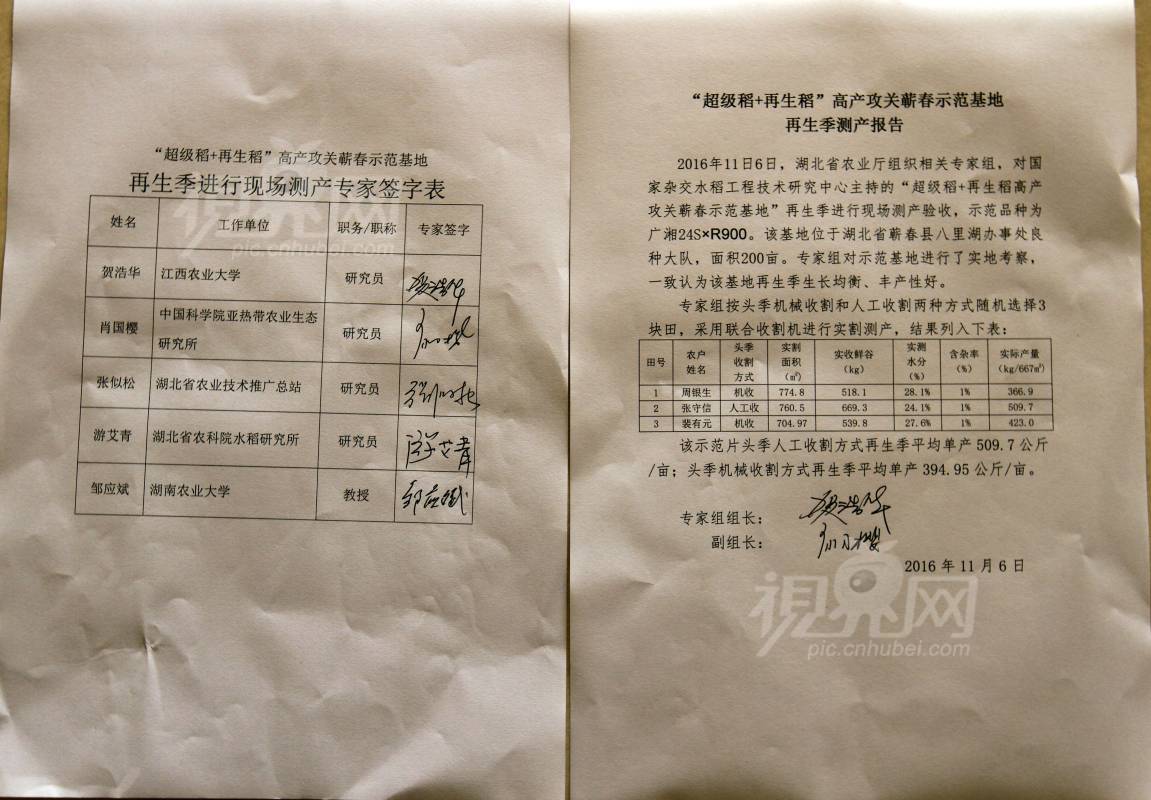 “超级稻+再生稻”高产攻关蕲春示范基地
再生季进行现场测产专家签字表
姓名 工作单位 职务/职称 专家签字
贺浩华 江西农业大学 研究员 贺浩华
肖国樱 中国科学院亚热带农业生态 研究员 肖国樱
研究所
张似松 湖北省农业技术推广总站 研究员 张似松
游艾青 湖北省农科院水稻研究所 研究员 游艾青
邹应斌 湖南农业大学 教授 邹应斌
“超级稻+再生稻”高产攻关蕲春示范基地
再生季测产报告
2016年11日6日，湖北省农业厅组织相关专家组，对国
家杂交水稻工程技术研究中心主持的“超级稻+再生稻高产
攻关蕲春示范基地”再生季进行现场测产验收，示范品种为
广湘24S×R900。该基地位于湖北省蕲春县八里湖办事处良
种大队，面积200亩。专家组对示范基地进行了实地考察，
一致认为该基地再生季生长均衡、丰产性好。
专家组按头季机械收割和人工收割两种方式随机选择3
块田，采用联合收割机进行实割测产，结果列入下表：
田号 农户姓名 头季收割方式 实割面积（㎡） 实收鲜谷（kg） 实测水分（%） 含杂率（%） 实际产量（kg/667㎡）
1 周银生 机收 774.8 518.1 28.1% 1% 366.9
2 张守信 人工收 760.5 669.3 24.1% 1% 509.7
3 裴有元 机收 704.97 539.8 27.6% 1% 423.0
该示范片头季人工收割方式再生季平均单产 509.7 公斤
/亩；头季机械收割方式再生季平均单产 394.95 公斤/亩。
专家组组长： 贺浩华
副组长： 肖国樱
2016 年 11 月 6 日
视界网
pic.cnhubei.com
视界网
pic.cnhubei.com